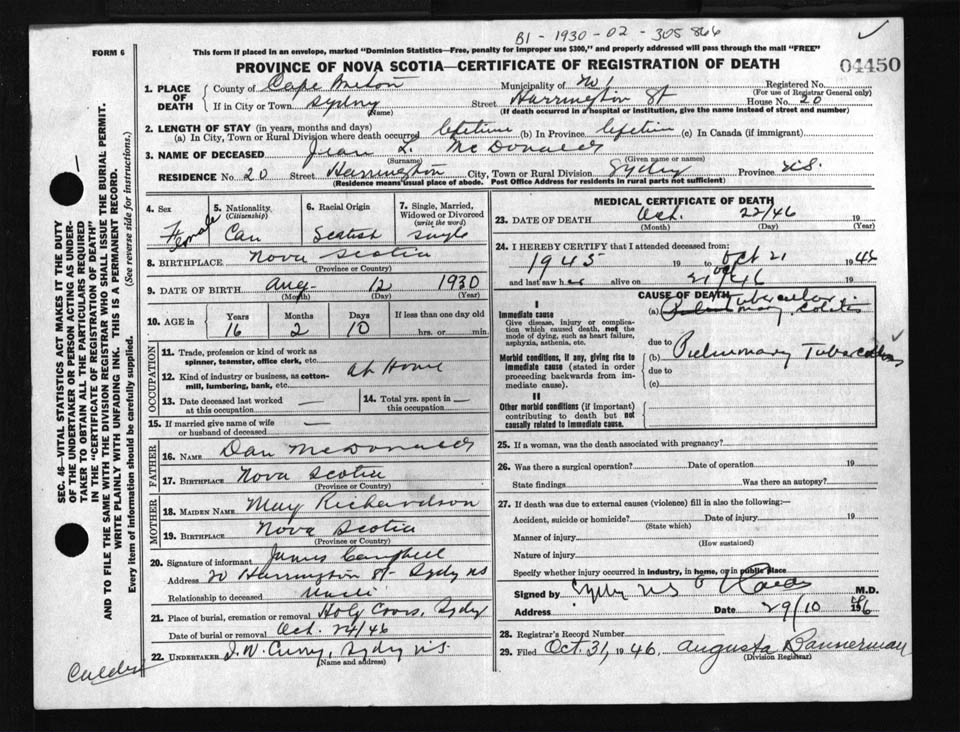 B1 - 1930 - 02 - 305866
FORM 6
This form if placed in an envelope, marked "Dominion Statistics—Free, penalty for improper use $300," and properly addressed will pass through the mail "FREE"
PROVINCE OF NOVA SCOTIA—CERTIFICATE OF REGISTRATION OF DEATH
04450
1. PLACE OF DEATH
County of Cape Breton Municipality of Registered No.
(For use of Registrar General only)
If in City or Town Sydney Street Harrington St House No. 20
(Name) (If death occurred in a hospital or institution, give the name instead of street and number)
2. LENGTH OF STAY (in years, months and days)
(a) In City, Town or Rural Division where death occurred lifetime (b) In Province lifetime (c) In Canada (if immigrant)
3. NAME OF DECEASED Jean L. McDonald
(Surname) (Given name or names)
RESIDENCE No. 20 Street Harrington City, Town or Rural Division Sydney Province N.S.
(Residence means usual place of abode. Post Office Address for residents in rural parts not sufficient)
4. Sex Female
5. Nationality (Citizenship) Can
6. Racial Origin Scotish
7. Single, Married, Widowed or Divorced (write the word) Single
8. BIRTHPLACE Nova Scotia
(Province or Country)
9. DATE OF BIRTH Aug- 12 1930
(Month) (Day) (Year)
10. AGE in Years Months Days If less than one day old
16 2 10 hrs. or min.
OCCUPATION
11. Trade, profession or kind of work as spinner, teamster, office clerk, etc. at Home
12. Kind of industry or business, as cotton-mill, lumbering, bank, etc.
13. Date deceased last worked at this occupation —
14. Total yrs. spent in this occupation —
15. If married give name of wife or husband of deceased —
FATHER
16. NAME Dan McDonald
17. BIRTHPLACE Nova Scotia
(Province or Country)
MOTHER
18. MAIDEN NAME May Richardson
19. BIRTHPLACE Nova Scotia
(Province or Country)
20. Signature of informant James Campbell
Address 20 Harrington St- Sydney NS
Relationship to deceased Uncle
21. Place of burial, cremation or removal Holy Cross, Sydney
Date of burial or removal Oct. 24/46
22. UNDERTAKER J. W. Curry, Sydney N.S.
(Name and address)
MEDICAL CERTIFICATE OF DEATH
23. DATE OF DEATH Oct. 22/46 19
(Month) (Day) (Year)
24. I HEREBY CERTIFY that I attended deceased from:
1945 19 to Oct 21 1946
and last saw her alive on Oct 21/46 19
CAUSE OF DEATH
I
Immediate cause
Give disease, injury or complication which caused death, not the mode of dying, such as heart failure, asphyxia, asthenia, etc.
(a) Tubercular Colitis
due to
Morbid conditions, if any, giving rise to immediate cause (stated in order proceeding backwards from immediate cause).
(b) Pulmonary Tuberculosis
due to
(c)
II
Other morbid conditions (if important) contributing to death but not causally related to immediate cause.
25. If a woman, was the death associated with pregnancy?
26. Was there a surgical operation? Date of operation 19
State findings Was there an autopsy?
27. If death was due to external causes (violence) fill in also the following:—
Accident, suicide or homicide? Date of injury 19
(State which)
Manner of injury
(How sustained)
Nature of injury
Specify whether injury occurred in industry, in home, or in public place
Signed by M.D.
Address Sydney NS Date 29/10 1946
28. Registrar's Record Number
29. Filed Oct. 31, 1946, Augusta Bannerman
(Division Registrar)
SEC. 46—VITAL STATISTICS ACT MAKES IT THE DUTY
OF THE UNDERTAKER OR PERSON ACTING AS UNDER-
TAKER TO OBTAIN ALL THE PARTICULARS REQUIRED
IN THE "CERTIFICATE OF REGISTRATION OF DEATH"
AND TO FILE THE SAME WITH THE DIVISION REGISTRAR WHO SHALL ISSUE THE BURIAL PERMIT.
WRITE PLAINLY WITH UNFADING INK. THIS IS A PERMANENT RECORD.
Every item of information should be carefully supplied. (See reverse side for instructions.)